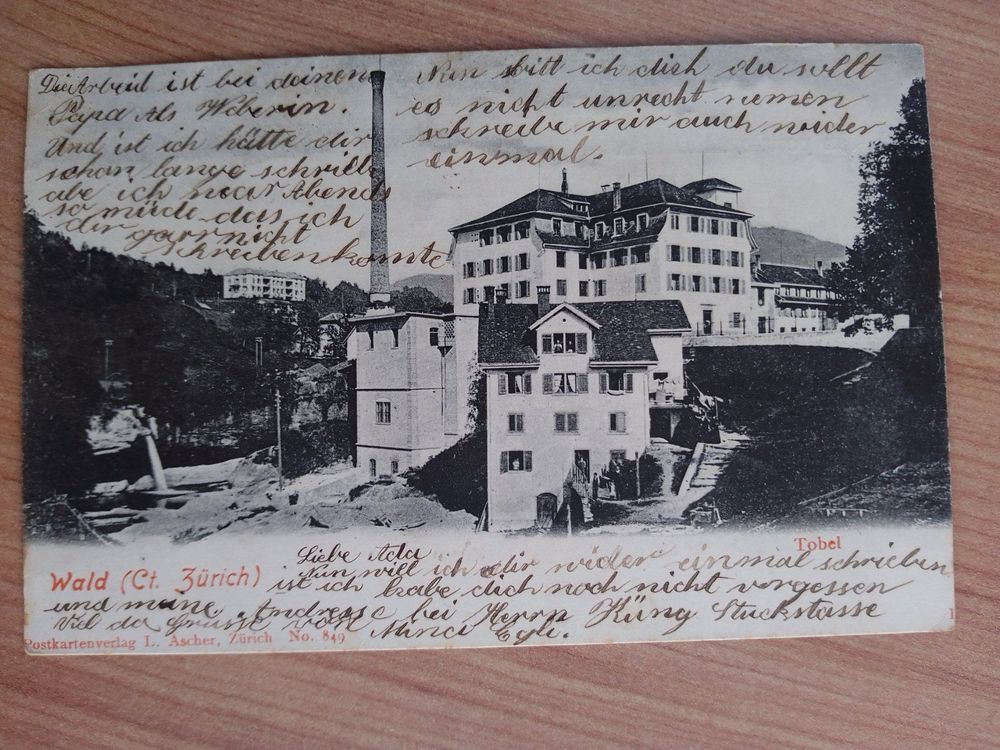 Die Arbeid ist bei deinen
Papa als Weberin.
Und ist ich hätte dir
schon lange schrill
abe ich war Abends
so müde das ich
dir garnicht
schreiben konnte
Nun bitt ich dich du sollt
es nicht unrecht nemen
schreibe mir auch wider
einmal.
Tobel
Wald (Ct. Zürich)
Liebe Ada
Nun will ich dir wider einmal schrieben
ist ich habe dich noch nicht vorgessen
und meine Andresse bei Herrn Küng
Vil da grüsse von Egli.
Postkartenverlag L. Ascher, Zürich No. 849